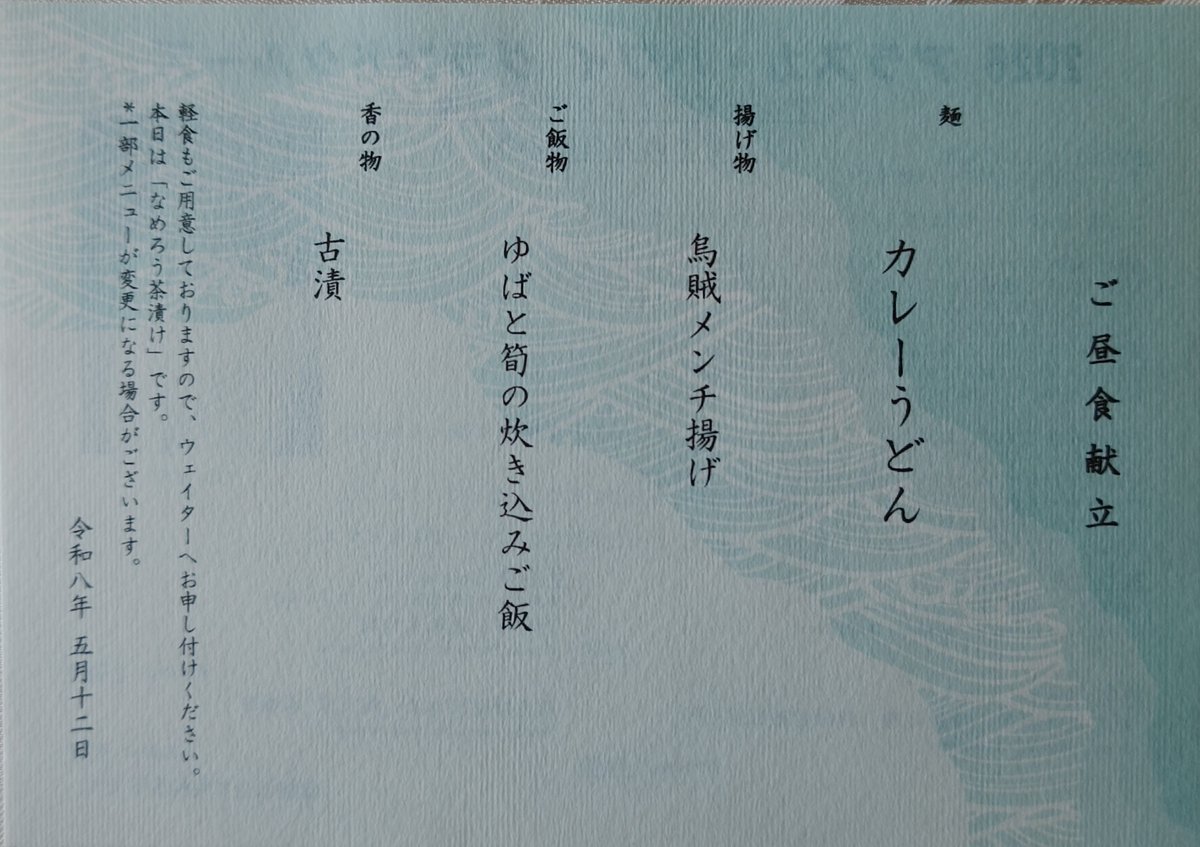 ご昼食献立
麺
カレーうどん
揚げ物
烏賊メンチ揚げ
ご飯物
ゆばと筍の炊き込みご飯
香の物
古漬
軽食もご用意しておりますので、ウェイターへお申し付けください。
本日は「なめろう茶漬け」です。
*一部メニューが変更になる場合がございます。
令和八年 五月十二日